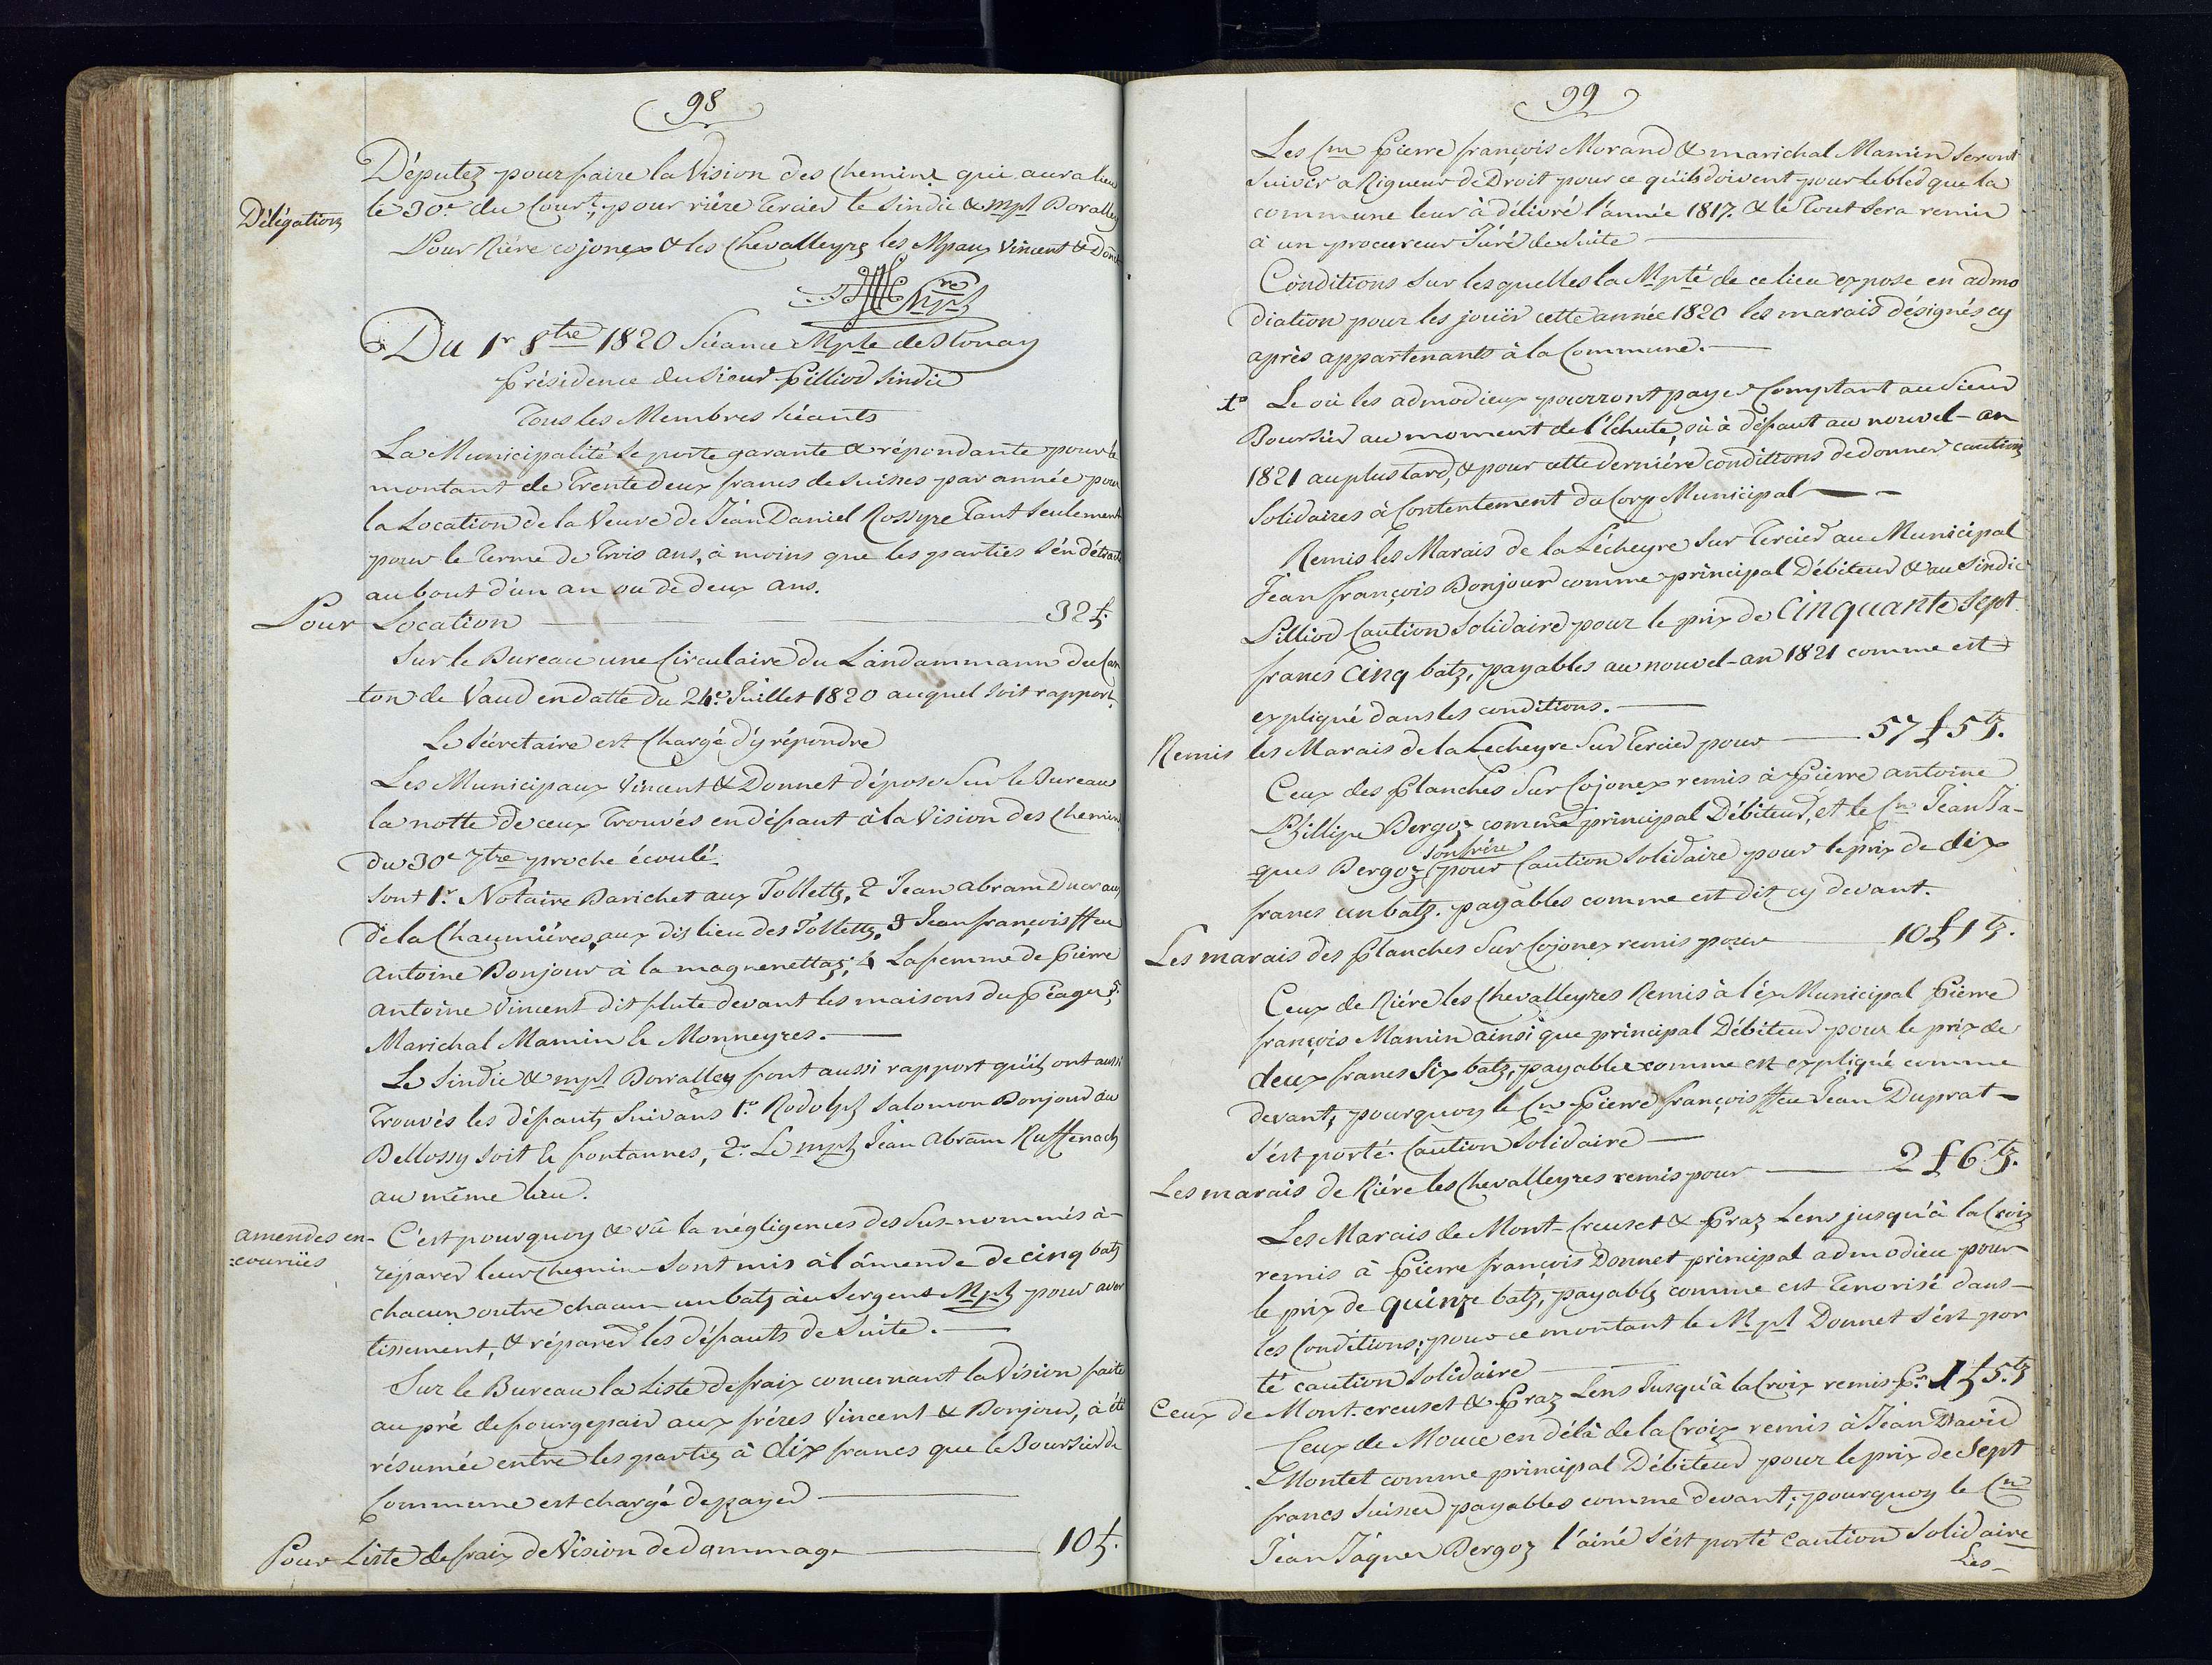 98
Députez pour faire la Vision des Chemins qui aura lieu
Délégation le 30.e du Cour.t, pour rière Tercier le Sindic & mpl Boralley
Pour Riére cojonex & les Chevalleyres les Mpaux Vincent & Donnet
Du 1.r 8tre 1820 Séance Mple de Blonay
Présidence du Sieur Pilliod Sindic
Tous les Membres Séants
La Municipalité se porte garante & répondante pour le
montant de Trente deux francs de suisses par année pour
la Location de la Veuve de Jean Daniel Rossyre tant seulement
pour le terme de Trois ans, à moins que les parties s'en détracte
au bout d'un an ou de deux ans.
Pour Location 32 £.
Sur le Bureau une Circulaire du Landammann du Can
ton de Vaud en datte du 24.e Juillet 1820 auquel soit rapport.
Le Sécretaire est Chargé d'y répondre
Les Municipaux Vincent & Donnet dépose Sur le Bureau
la notte de ceux Trouvés en défaut à la Vision des Chemins
du 30.e 7tre proche écoulé.
sont 1.r Notaire Barichet aux Tolletts, 2 Jean abram Ducraux
de la Chaumières aux dis lieu des Tolletts, 3 Jean françois ffeu
Antoine Bonjour à la magnenettaz; 4 La femme de Pierre
Antoine Vincent dit flute devant les maisons du Péage; 5.
Marichal Mamin le Monneyres.
Le Sindic & mpl Borralley font aussi rapport qu'ils ont aussi
Trouvés les défauts Suivans 1.o Rodolph Salomon Bonjour au
Bellossy soit le fontannes, 2.o Le mpl Jean Abram Ruffenach
au même lieu.
amendes en- C'est pourquoy & vû la négligences des Sus-nommés à
=courrües réparer leur chemin sont mis à l'âmende de cinq batz
chacun outre chacun un batz au Sergent Mpl pour aver
tissement, & réparer les défauts de Suite.
Sur le Bureau la Liste de fraix concernant la Vision faite
au pré de fourgepair aux fréres Vincent & Bonjour, à été
résumée entre les parties à dix francs que le Boursier de
Commune est chargé de payer
Pour Liste de fraix de Vision de dommage 10 £.
99
Les Cen Pierre françois Morand & marichal Mamin seront
suivis a Rigueur de Droit pour ce qu'ils doivent pour le bled que la
commune leur à délivré l'année 1817. & le Tout sera remis
à un procureur Juré de Suite
Conditions Sur lesquelles la Mpté de ce lieu expose en admo
diation pour les jouïr cette année 1820 les marais désignés cy
après appartenants à la Commune.
1.o Le où les admodieux pourront payer Comptant au Sieur
Boursier au moment de l'Echute, où à défaut au nouvel-an
1821 au plus tard, & pour cette derniére conditions de donner caution
Solidaires à Contentement du Corp Municipal
Remis les Marais de la Lécheyre Sur Tercier au Municipal
Jean françois Bonjour comme principal Débiteur & au Sindic
Pilliod Caution Solidaire pour le prix de Cinquante Sept
francs Cinq batz, payables au nouvel-an 1821 comme est
expliqué dans les conditions.
Remis les Marais de la Lecheyre Sur Tercier pour 57 £ 5 tz.
Ceux des Planches Sur Cojonex remis à Pierre antoine
Phillipe Bergoz comme principal Débiteur, et le Cn Jean Ja-
ques Bergoz son frère pour Caution Solidaire pour le prix de dix
francs un batz. payables comme est dit cy devant.
Les marais des Planches Sur Cojonex remis pour 10 £ 1 tz.
Ceux de Riére les Chevalleyres Remis à l'éx Municipal Pierre
françois Mamin ainsi que principal Débiteur pour le prix de
deux francs Six batz, payables comme est expliqué comme
devant, pourquoy le Cn Pierre françois ffeu Jean Duprat
s'est porté Caution Solidaire
Les marais de Riére les Chevalleyres remis pour 2 £ 6 tz.
Les Marais de Mont-Creuset & Praz Lens jusqu'à la Croix
remis à Pierre françois Donnet principal admodieu pour
le prix de quinze batz, payables comme est Ténorisé dans
les Conditions; pour ce montant le Mpl Donnet s'est por
té caution solidaire
Ceux de Mont-creuset & Praz Lens Jusqu'à la Croix remis P.r 1 £ 5 tz
Ceux de Mouce en délà de la Croix remis à Jean David
Montet comme principal Débiteur pour le prix de Sept
francs Suisses payables comme devant; pourquoy le Cn
Jean Jâques Bergoz l'ainé s'est porté caution Solidaire
Les-